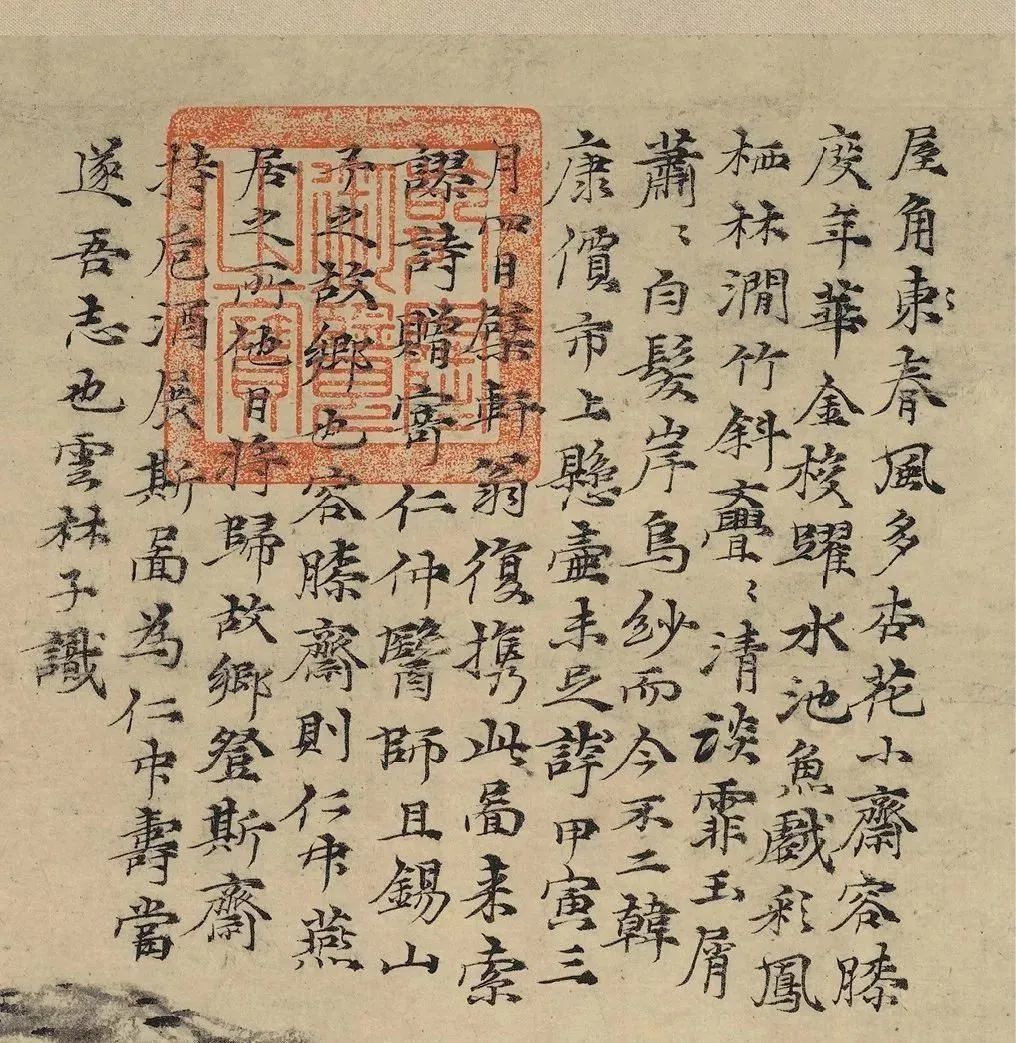 屋角東春風多杏花小齋容膝
度年華金梭躍水池魚戲彩鳳
栖林澗竹斜亹〻清談霏玉屑
蕭〻白髮岸烏紗而今不二韓
康價市上懸壺未足誇甲寅三
月四日檗軒翁復携此圖来索
謬詩贈寄仁仲醫師且錫山
予之故鄉也容膝齋則仁中燕
居之所他日将歸故鄉登斯齋
持卮酒展斯圖為仁中壽當
遂吾志也雲林子識
乾隆御覽之寶